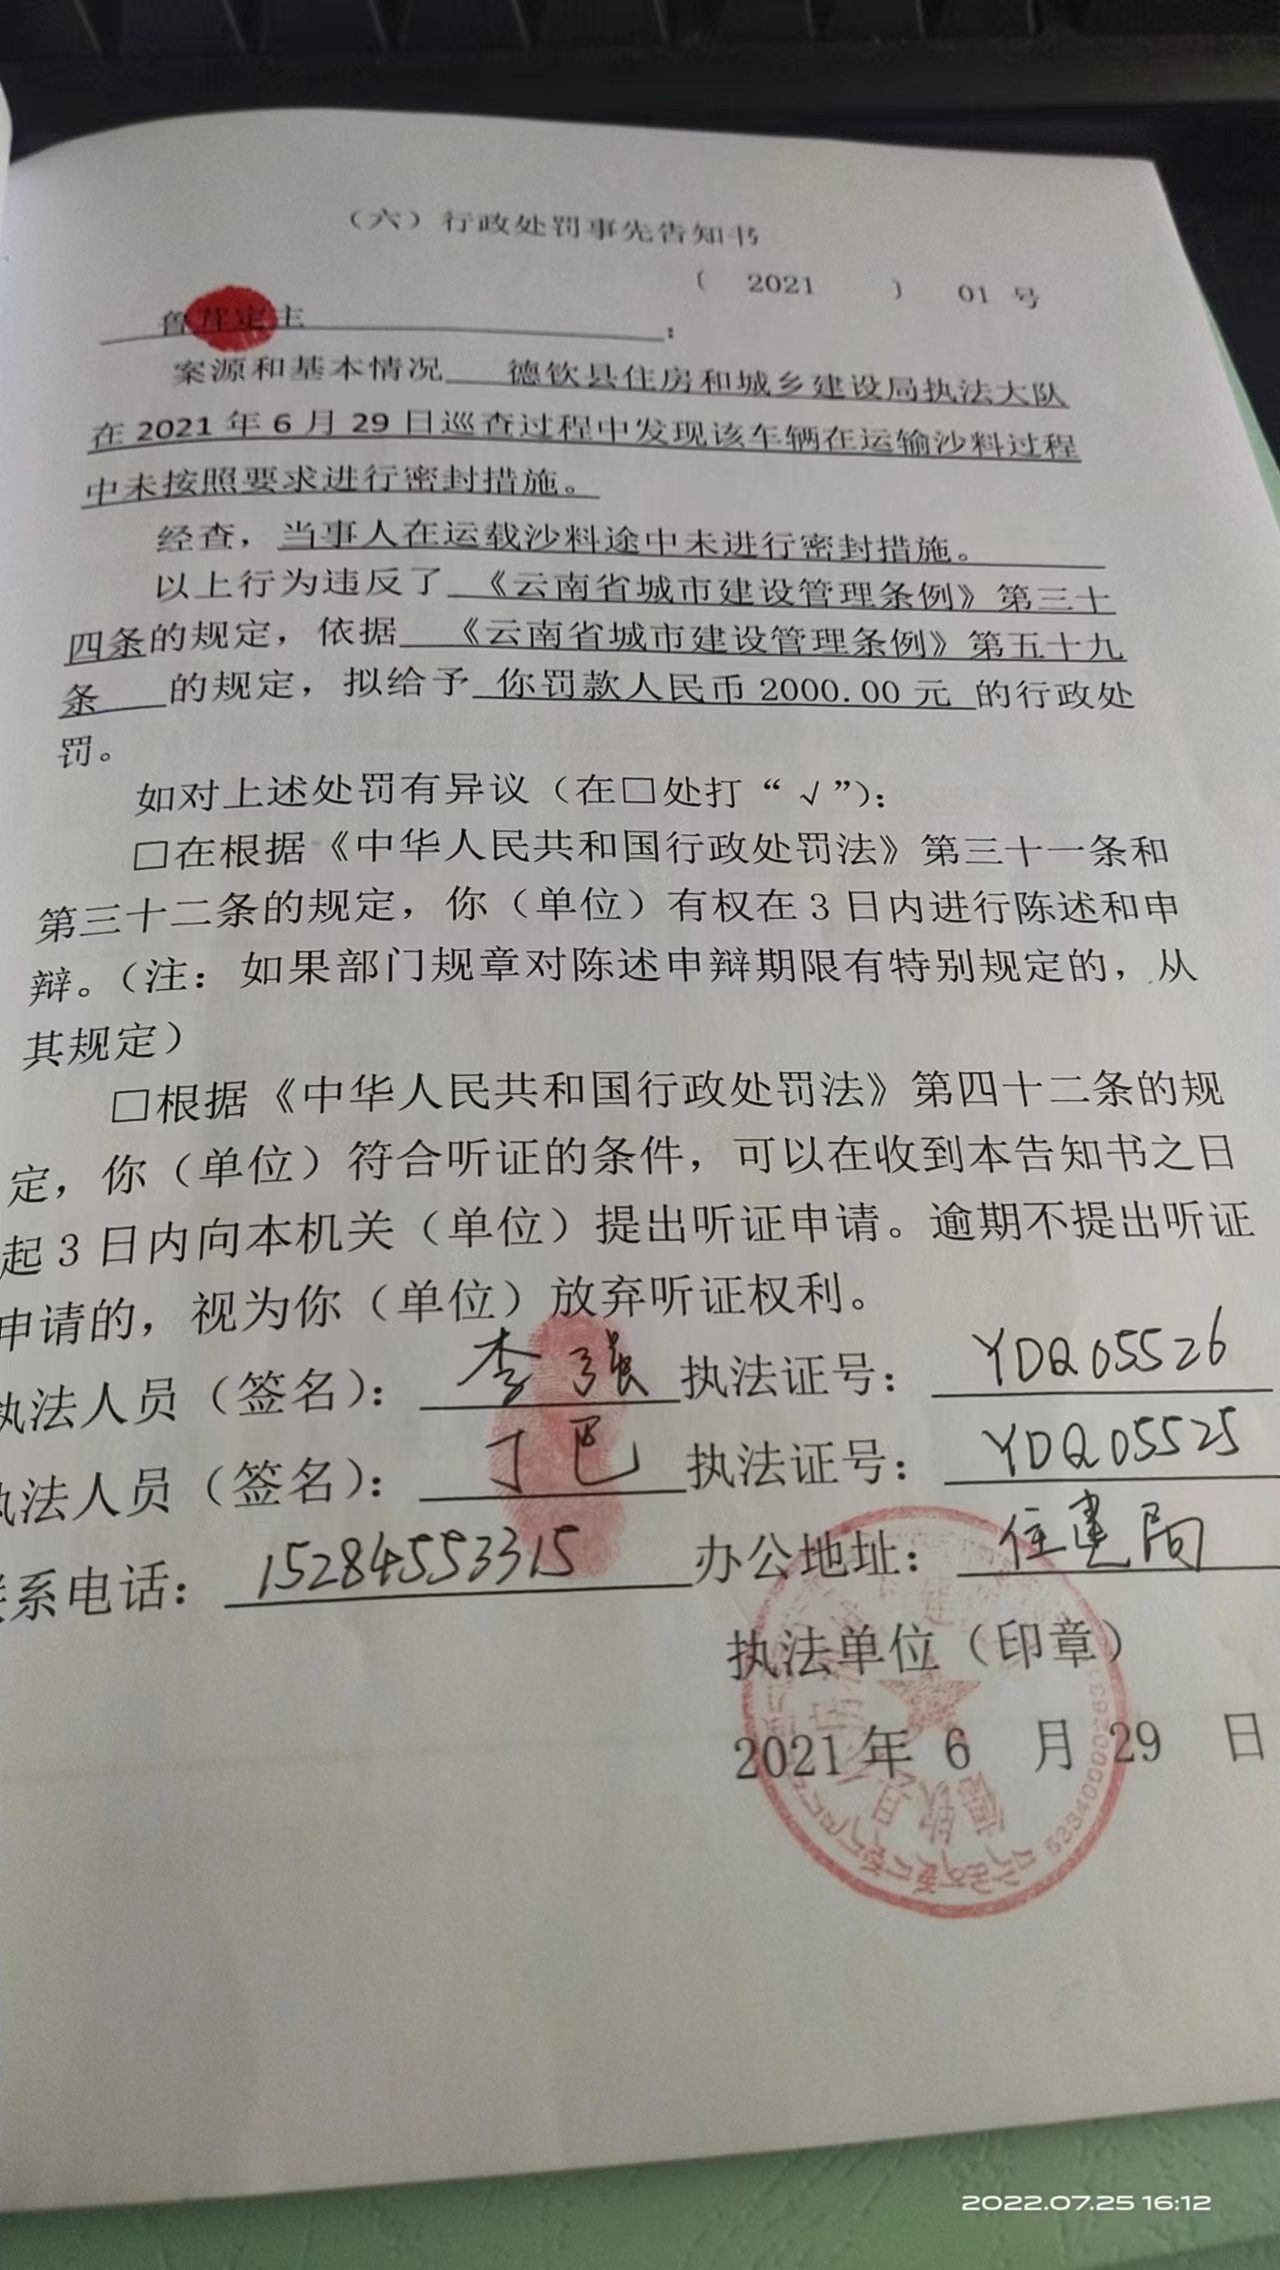 （六）行政处罚事先告知书
（ 2021 ） 01 号
鲁茸定主：
案源和基本情况 德钦县住房和城乡建设局执法大队
在 2021 年 6 月 29 日巡查过程中发现该车辆在运输沙料过程
中未按照要求进行密封措施。
经查，当事人在运载沙料途中未进行密封措施。
以上行为违反了 《云南省城市建设管理条例》第三十
四条的规定，依据 《云南省城市建设管理条例》第五十九
条 的规定，拟给予 你罚款人民币 2000.00 元 的行政处
罚。
如对上述处罚有异议（在□处打“√”）：
□在根据《中华人民共和国行政处罚法》第三十一条和
第三十二条的规定，你（单位）有权在 3 日内进行陈述和申
辩。（注：如果部门规章对陈述申辩期限有特别规定的，从
其规定）
□根据《中华人民共和国行政处罚法》第四十二条的规
定，你（单位）符合听证的条件，可以在收到本告知书之日
起 3 日内向本机关（单位）提出听证申请。逾期不提出听证
申请的，视为你（单位）放弃听证权利。
执法人员（签名）： 李强 执法证号： YDQ05526
执法人员（签名）： 丁巴 执法证号： YDQ05525
联系电话： 15284553315 办公地址： 住建局
执法单位（印章）
2021 年 6 月 29 日
2022.07.25 16:12